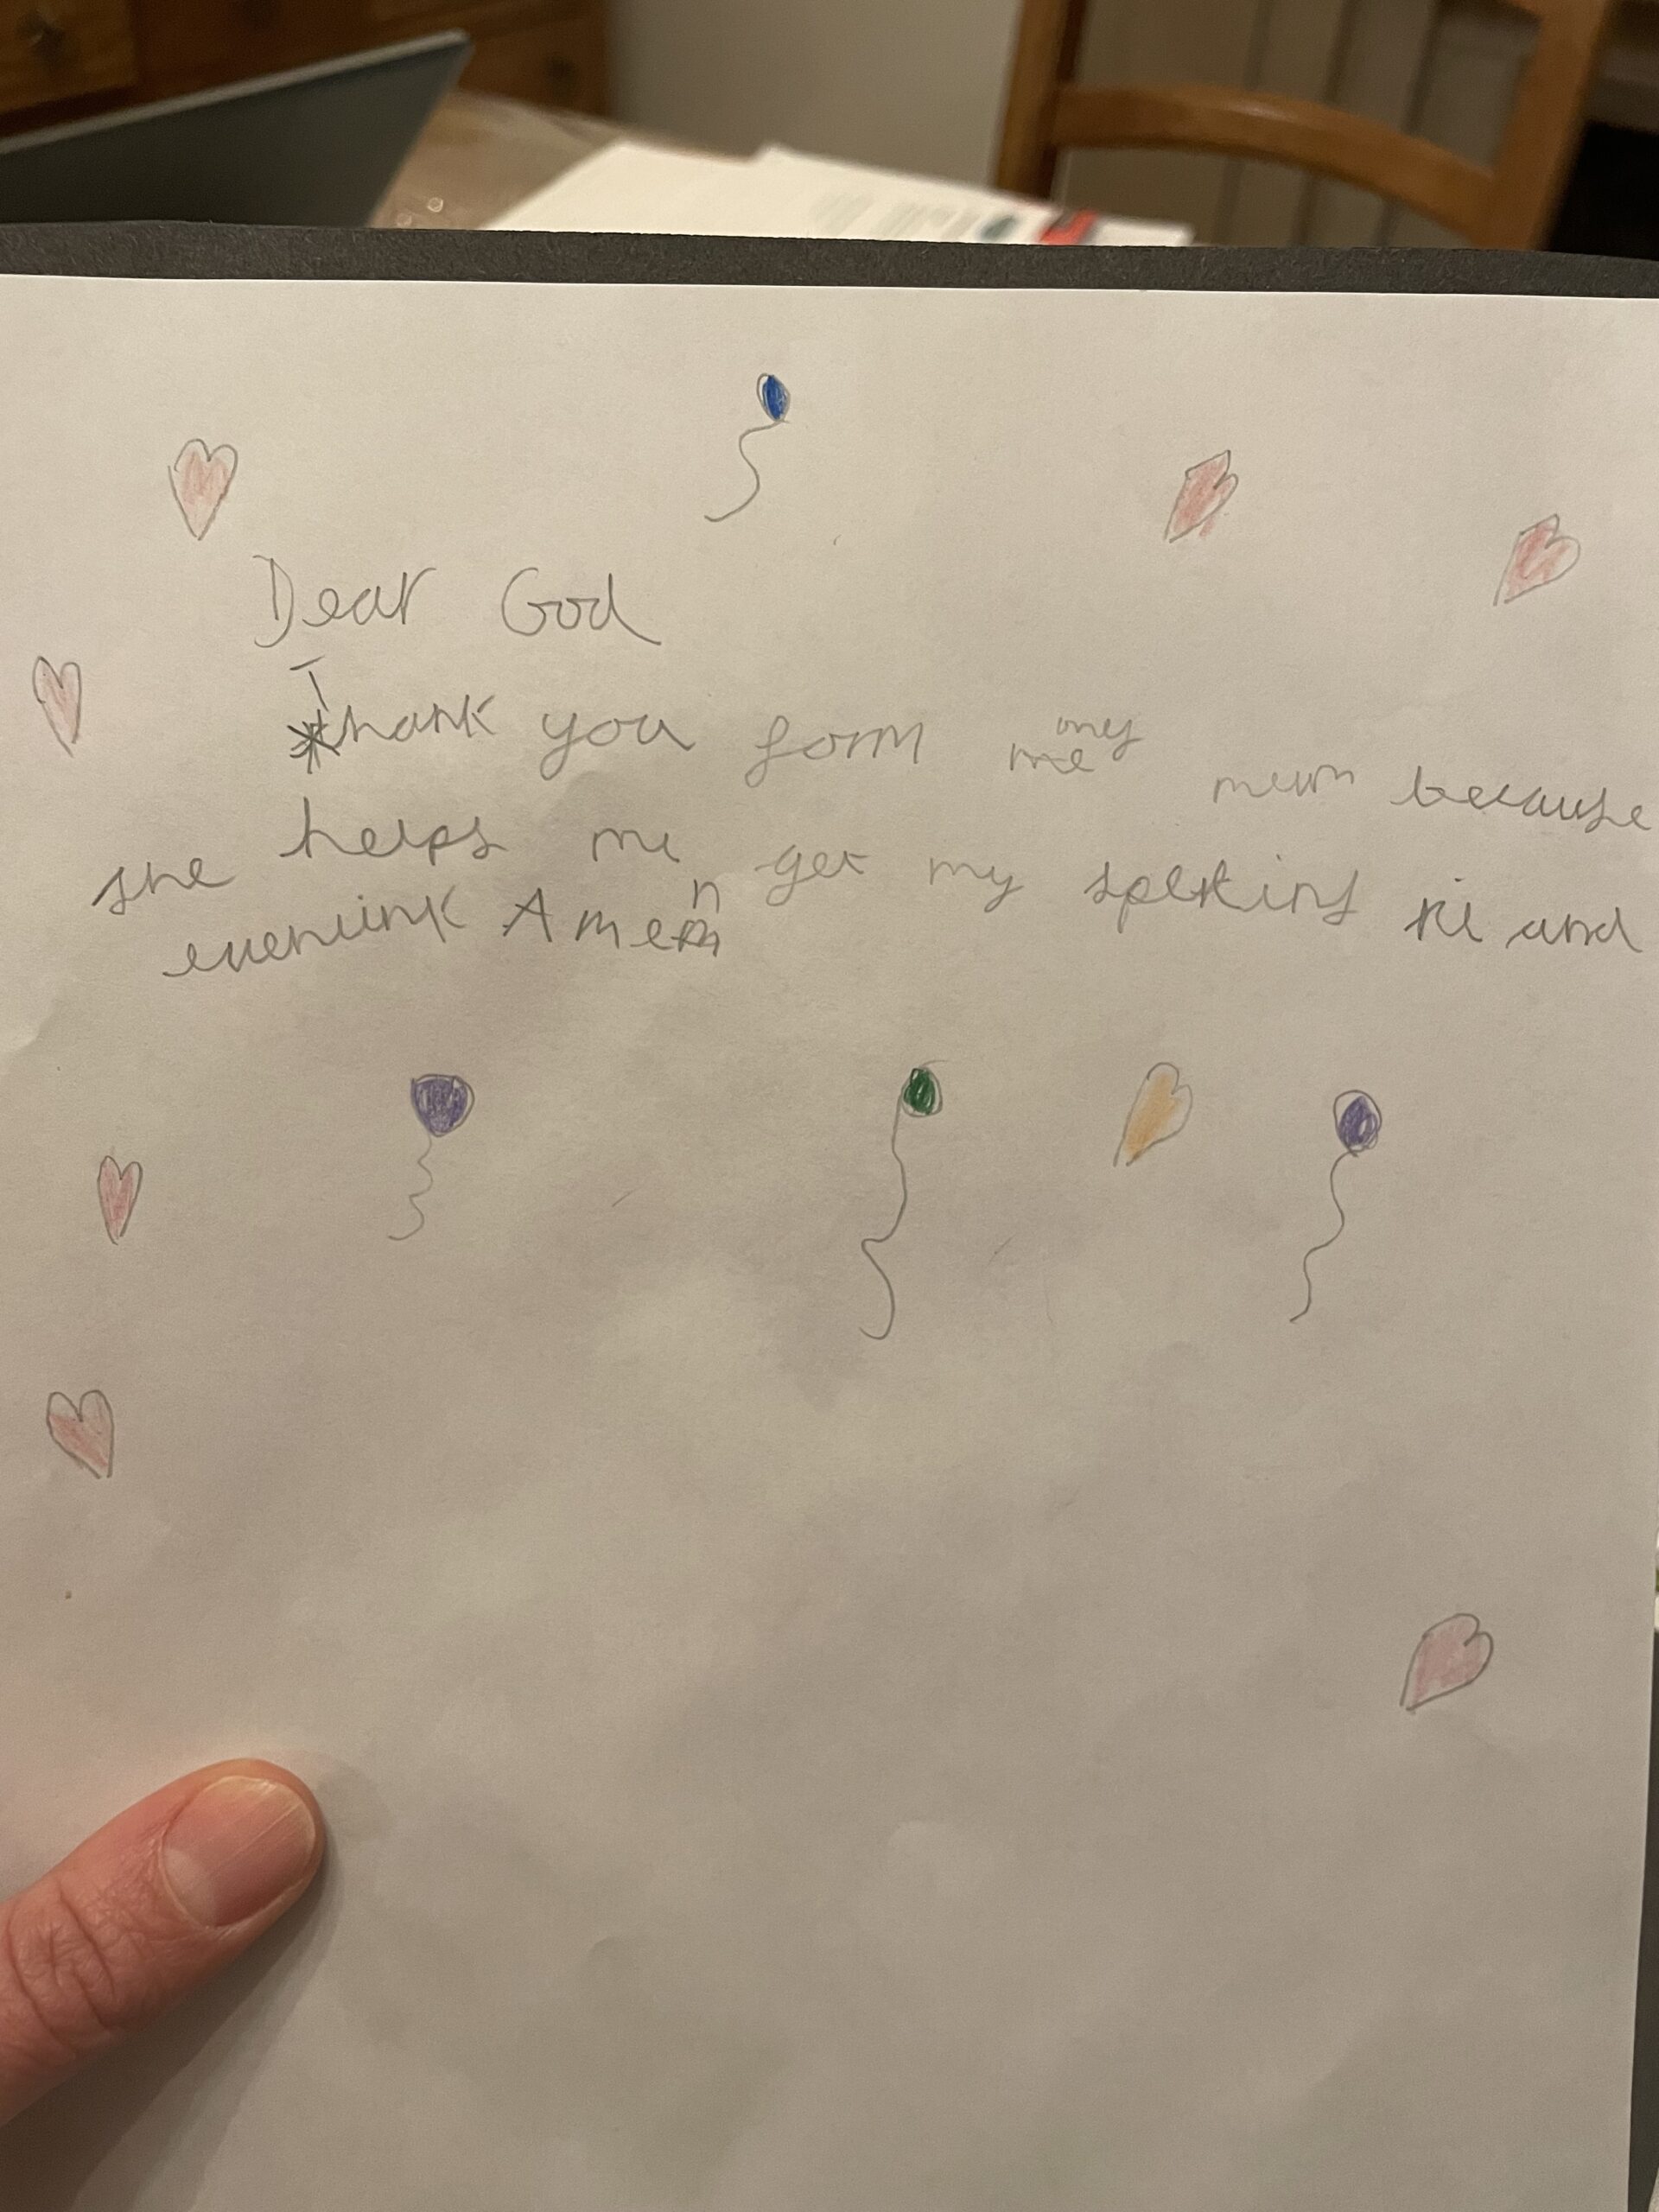 Dear God
Thank you form my mum because
she helps me get my spelling rit and
evenink Amen